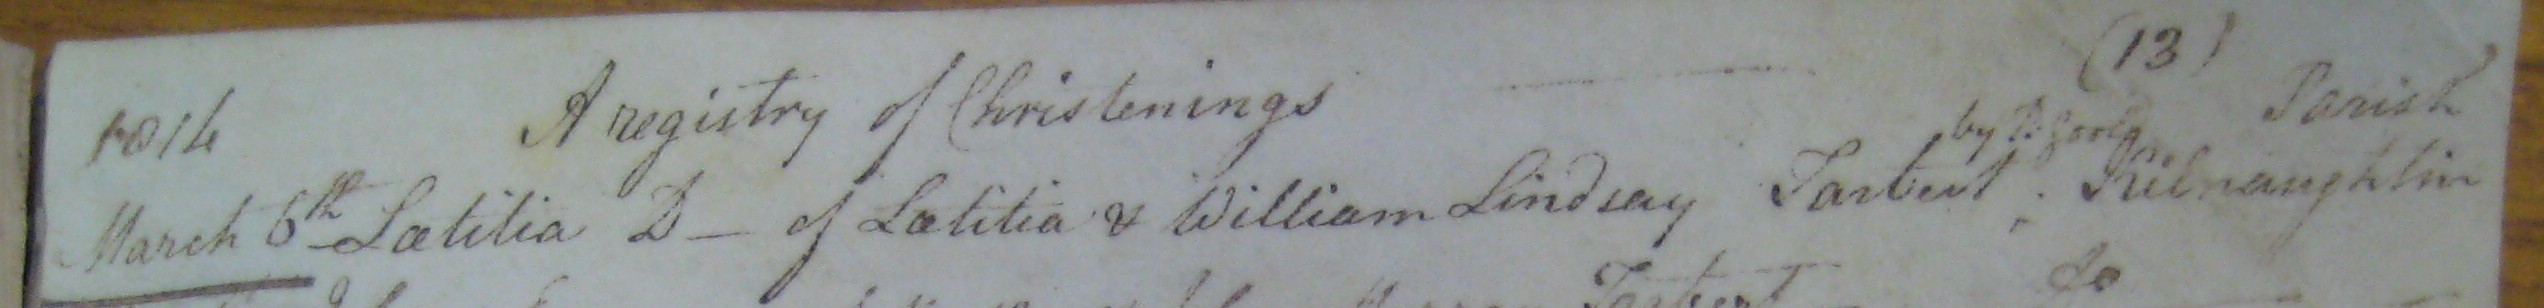 (13)
1814 A registry of Christenings Parish
by
March 6th Lætitia D - of Lætitia & William Lindsay Tarbert ; Kilnaughtin
Tarbert do